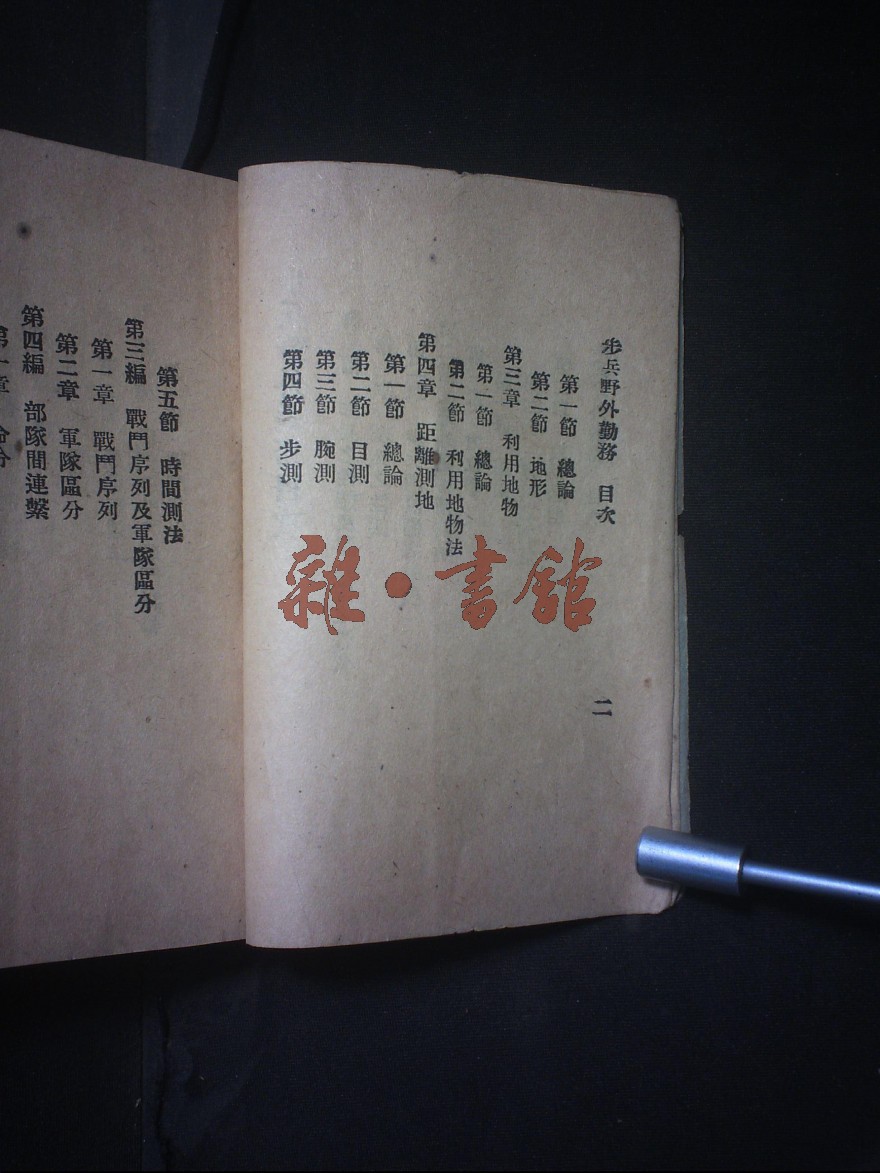 步兵野外勤務 目次
二
第一節 總論
第二節 地形
第三章 利用地物
第一節 總論
第二節 利用地物法
第四章 距離測地
第一節 總論
第二節 目測
第三節 腕測
第四節 步測
第五節 時間測法
第三編 戰鬥序列及軍隊區分
第一章 戰鬥序列
第二章 軍隊區分
第四編 部隊間連繫
第一章 命令
雜·書館